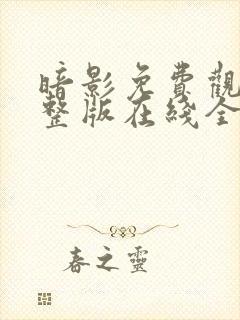 暗影免費觀
整版在线全
春之靈